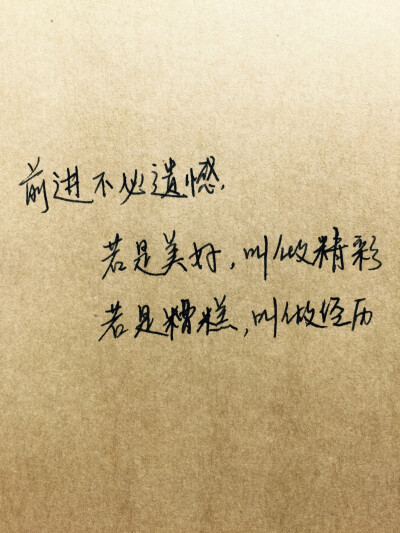 前进不必遗憾.
若是美好,叫做精彩
若是糟糕,叫做经历